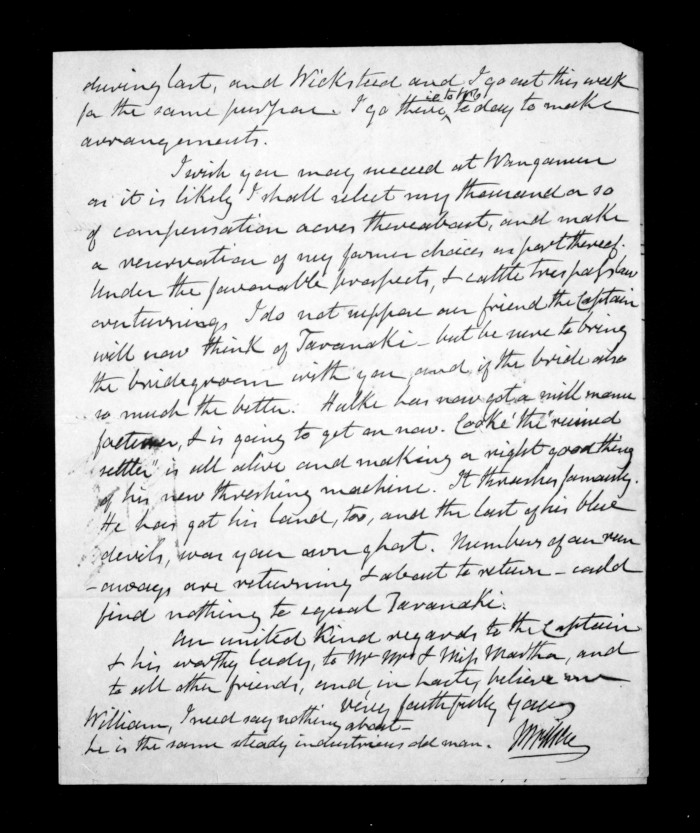 during last, and Wicksteed and I go out this week
for the same purpose. I go there, to day to make
arrangements.
I wish you may succeed at Wanganui
as it is likely I shall select my thousand or so
of compensation acres thereabout, and make
a reservation of my former choices as part thereof.
Under the favourable prospects, & cattle trespass law
overturnings I do not suppose our friend the Captain
will now think of Taranaki – but be sure to bring
the bridegroom with you, and if the bride also
so much the better. Halke has now got a mill
& is going to get on now. Cooke "the ruined
settler" is all alive and making a right good thing
of his new threshing machine. It thrashes famously.
He has got his land, too, and the last of his blue
devils, was your own ghost. Numbers of our run
-aways are returning & about to return – could
find nothing to equal Taranaki.
Our united kind regards to the Captain
& his worthy lady, to Mr Mrs & Miss Martha, and
to all other friends, and, in haste, believe me
very faithfully yours
William, I need say nothing about –
he is the same steady industrious old man.